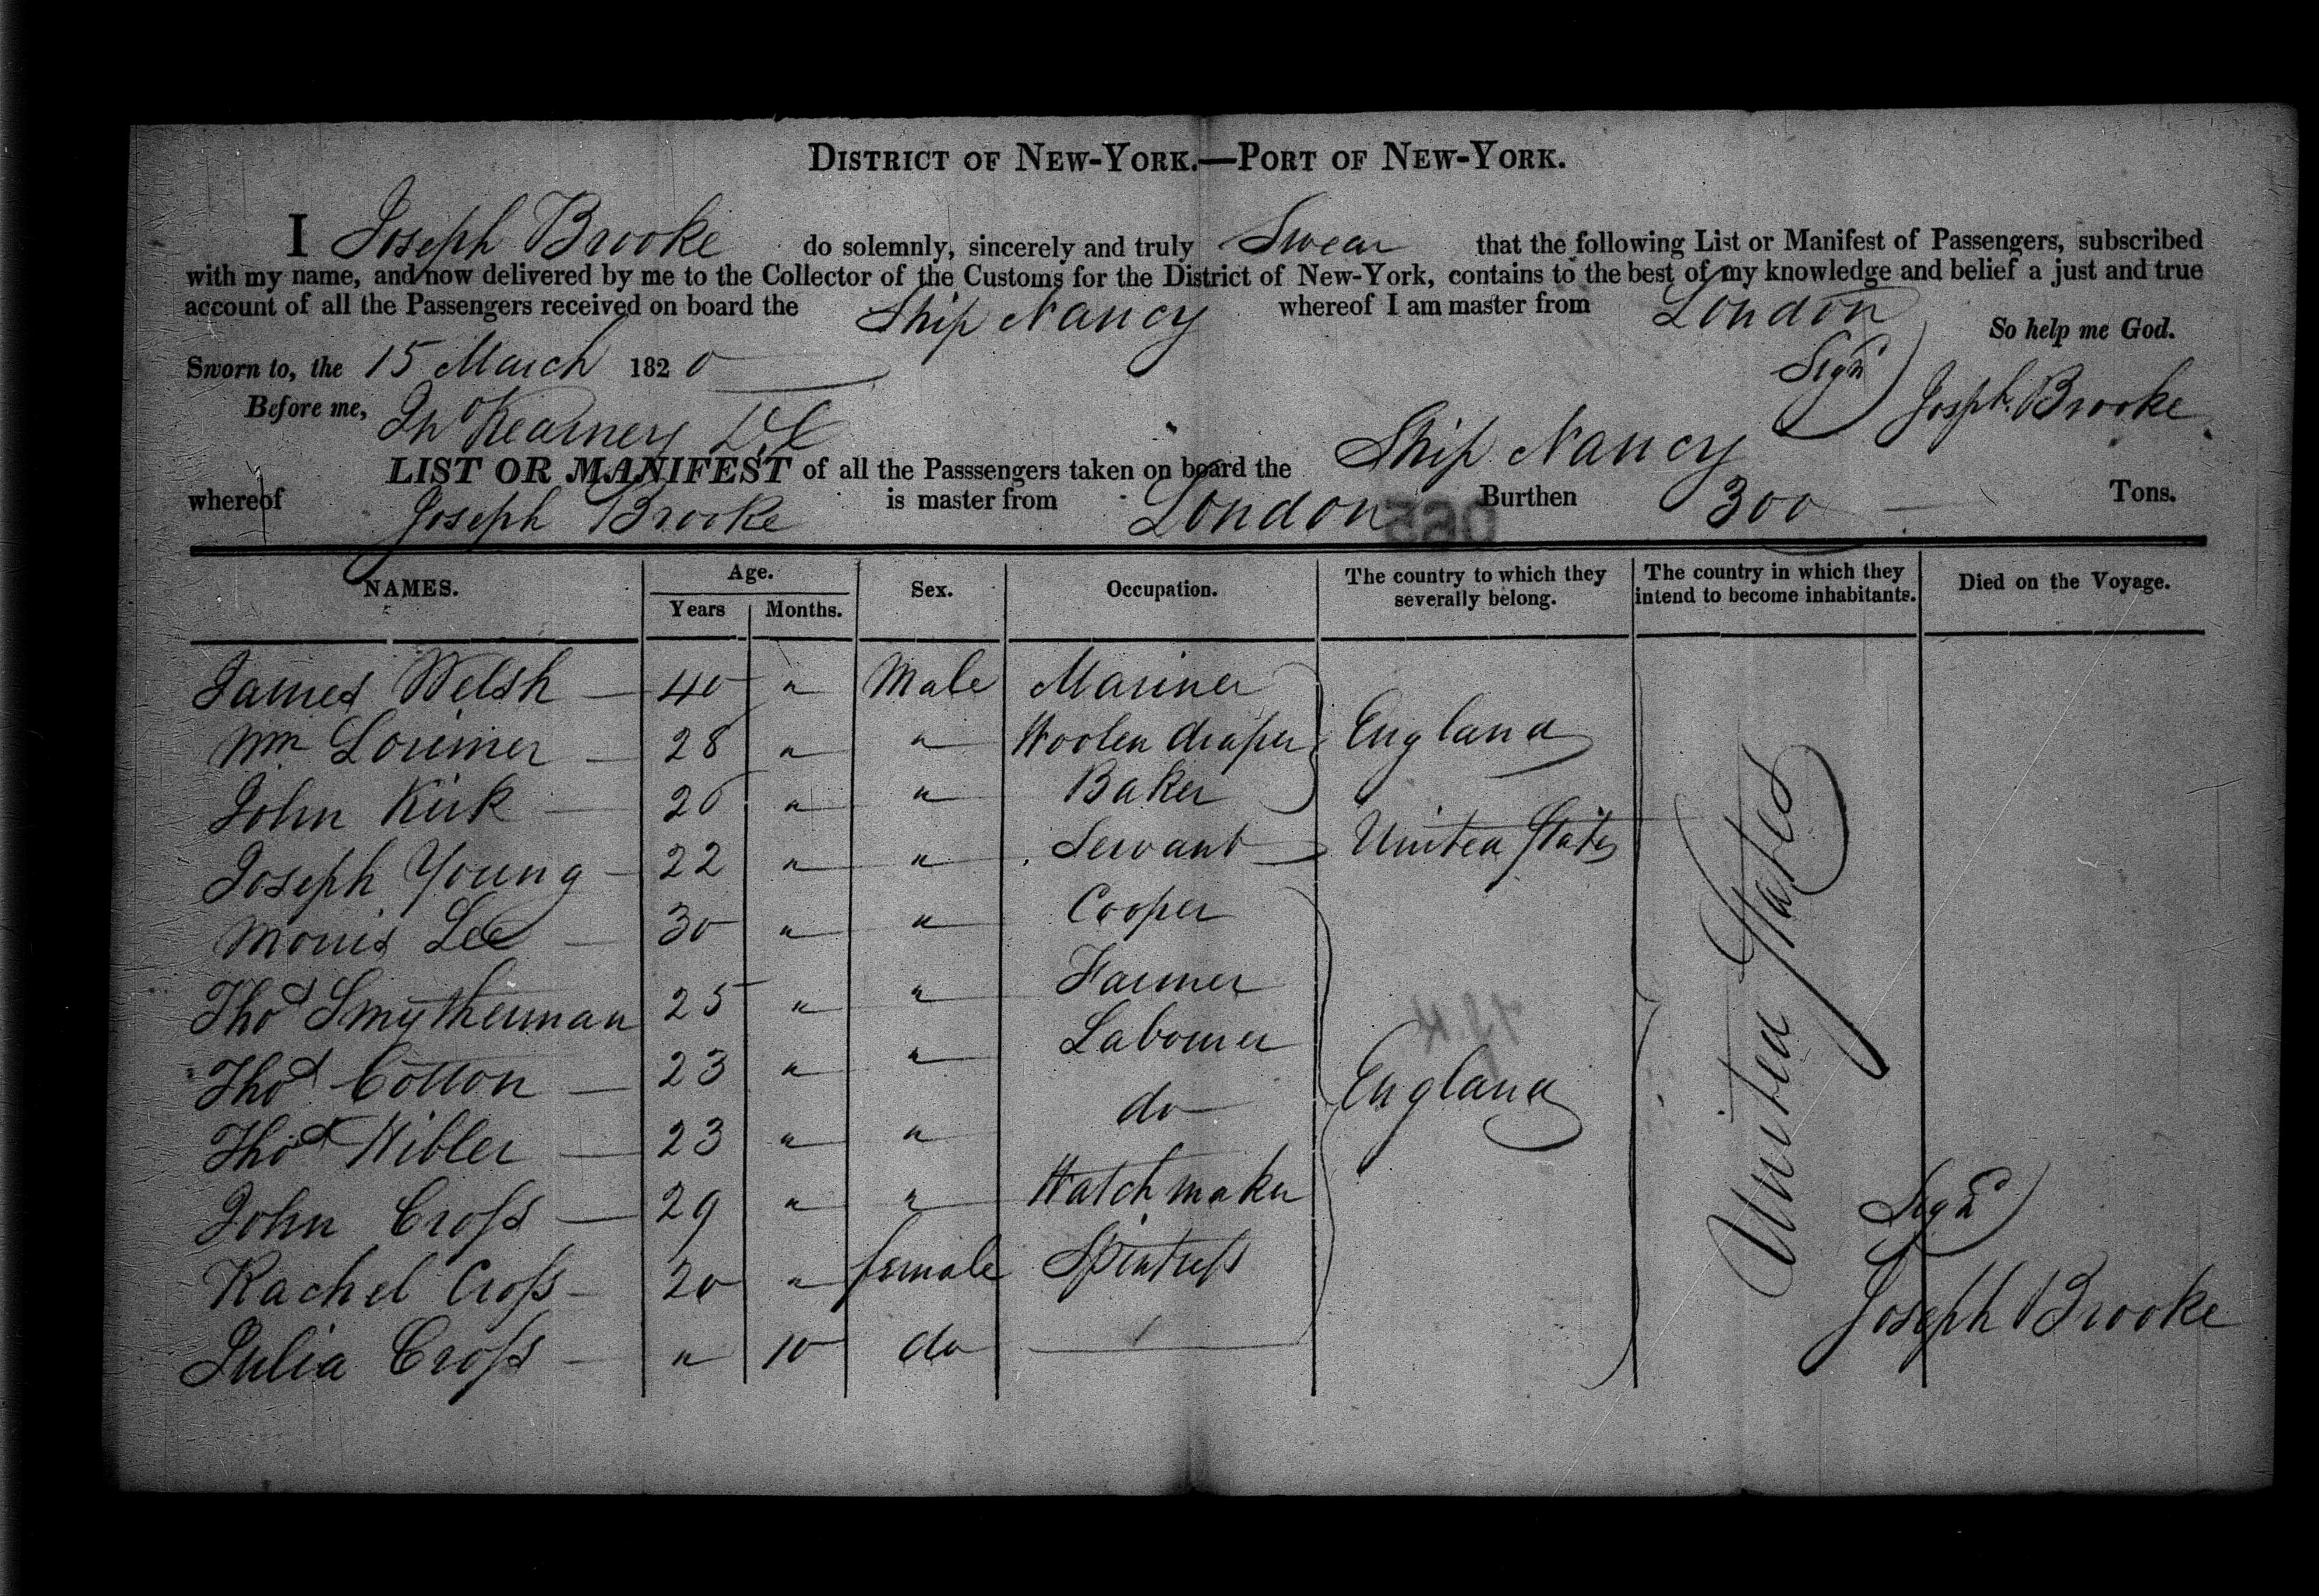 DISTRICT OF NEW-YORK.—PORT OF NEW-YORK.
I Joseph Brooke do solemnly, sincerely and truly Swear that the following List or Manifest of Passengers, subscribed
with my name, and now delivered by me to the Collector of the Customs for the District of New-York, contains to the best of my knowledge and belief a just and true
account of all the Passengers received on board the Ship Nancy whereof I am master from London
So help me God.
Sworn to, the 15 March 1820
Sign'd Joseph. Brooke
Before me, Jno Kearney
LIST OR MANIFEST of all the Passsengers taken on board the Ship Nancy
whereof Joseph Brooke is master from London Burthen 300 Tons.
NAMES. Age. Sex. Occupation. The country to which they severally belong. The country in which they intend to become inhabitants. Died on the Voyage.
Years Months.
James Welsh — 40 " Male Mariner
Wm Lorimer — 28 " " Woolen draper England
John Kirk — 26 " " Baker
Joseph Young — 22 " " Servant — United States
Morris Lee — 30 " " Cooper
Thos Smytherman 25 " " Farmer
Thos Cotton — 23 " " Labourer
Thos Wibler — 23 " " do England
John Cross — 29 " " Watch maker
Rachel Cross — 20 " female Spintress
Julia Cross — " 10 do —
United States
Sign'd
Joseph Brooke